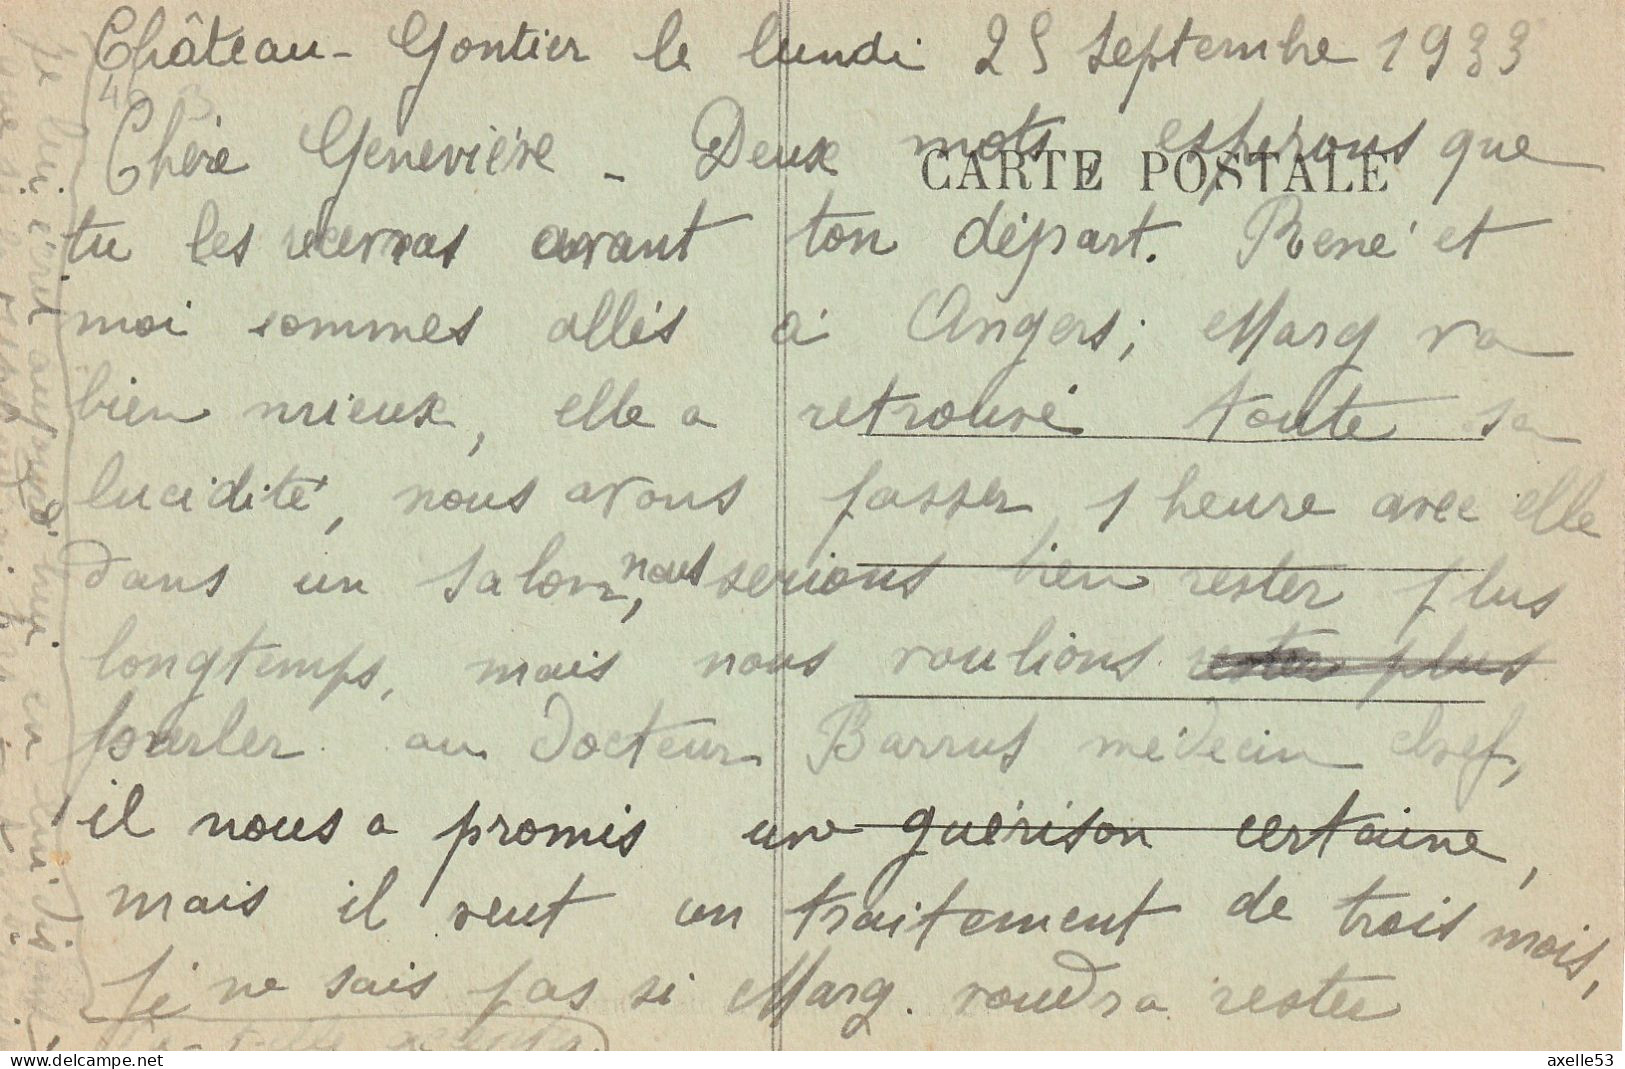 Château-Gontier le lundi 25 Septembre 1933
46 B
Chère Geneviève - Deux mots, espérons que
CARTE POSTALE
tu les recevras avant ton départ. René et
moi sommes allés à Angers; Marg va
bien mieux, elle a retrouvé toute sa
lucidité, nous avons passer 1 heure avec elle
dans un Salon, nous serions bien rester plus
longtemps, mais nous voulions rester plus
parler au Docteur Barrus médecin chef,
il nous a promis une guérison certaine,
mais il veut un traitement de trois mois,
je ne sais pas si Marg. voudra rester
je lui écrit aujourd'hui en lui disant
que si
axelle53
delcampe.net